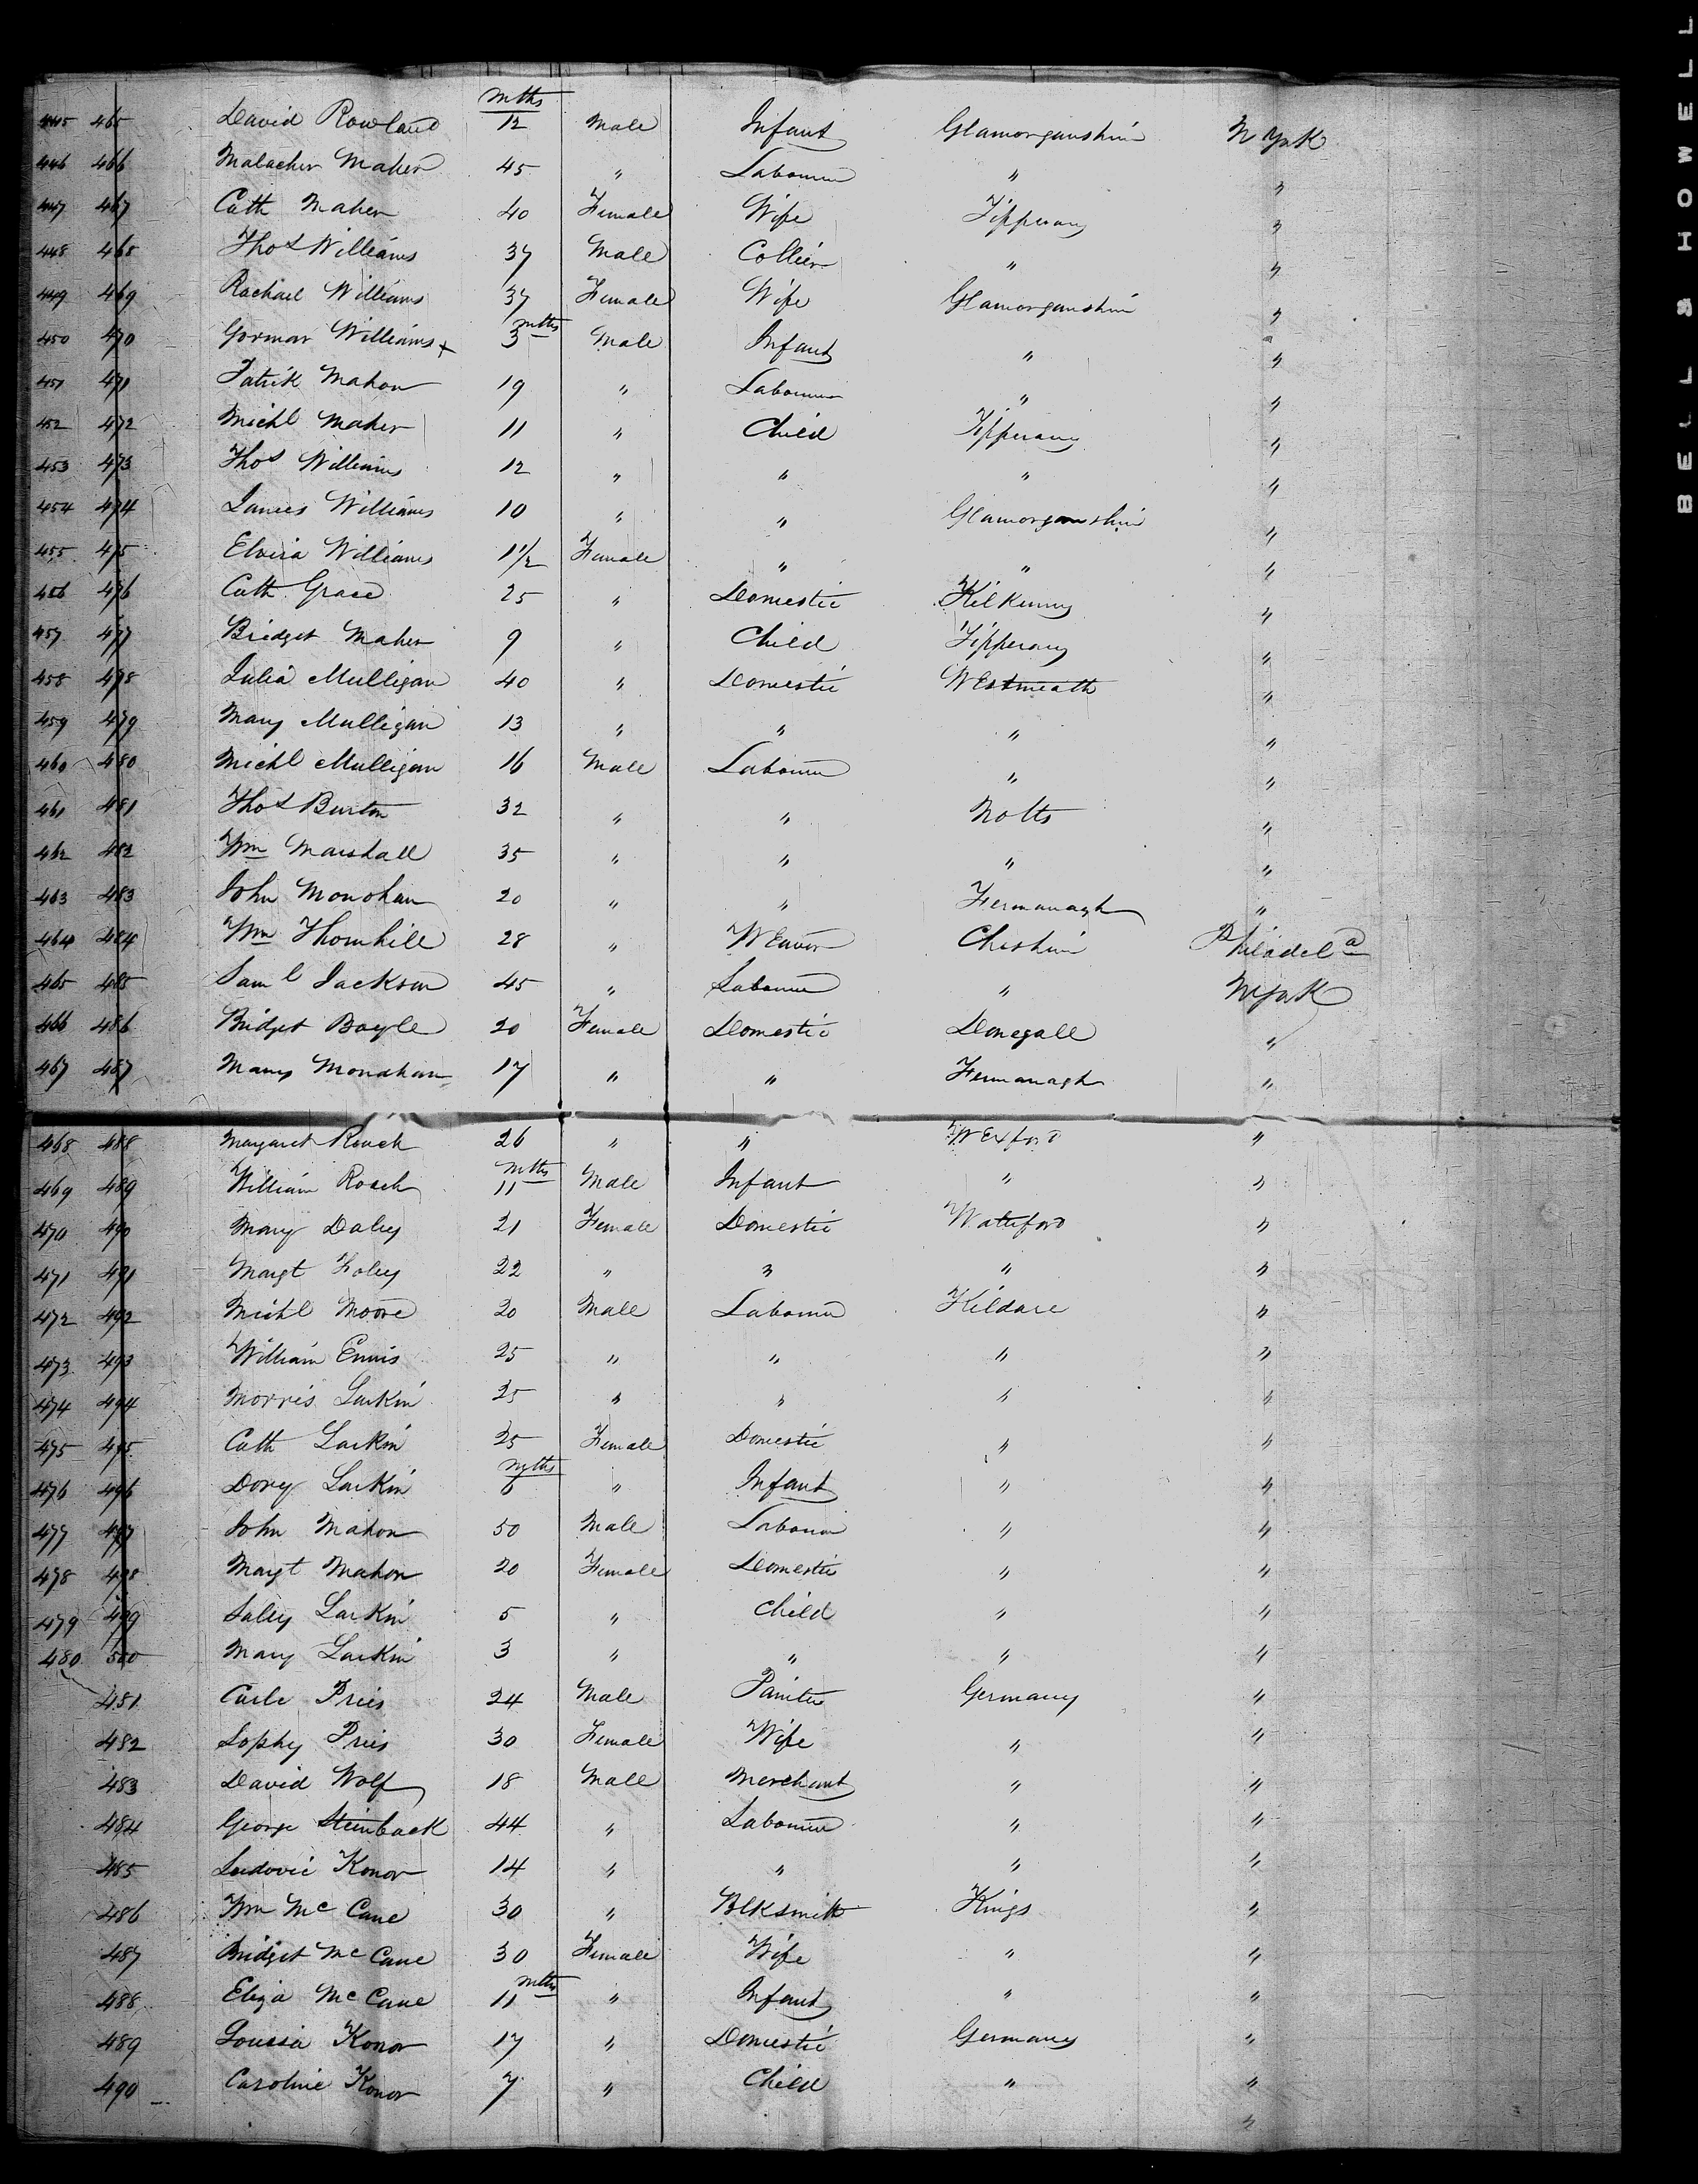 445 465 David Rowland mths 12 Male Infant Glamorganshire N York
446 466 Malacher Maher 45 " Labourer " "
447 467 Cath Maher 40 Female Wife Tipperary "
448 468 Thos Williams 37 Male Collier " "
449 469 Rachael Williams 37 Female Wife Glamorganshire "
450 470 Williams + 3 mths Male Infant " "
451 471 Patrik Mahon 19 " Labourer " "
452 472 Michl Maher 11 " Child Tipperary "
453 473 Thos Williams 12 " " " "
454 474 James Williams 10 " " Glamorganshire "
455 475 Elvira Williams 1 1/2 Female " " "
456 476 Cath Grace 25 " Domestic Kilkenny "
457 477 Bridget Maher 9 " Child Tipperary "
458 478 Julia Mulligan 40 " Domestic Westmeath "
459 479 Mary Mulligan 13 " " " "
460 480 Michl Mulligan 16 Male Labourer " "
461 481 Thos Burton 32 " " Notts "
462 482 Wm Marshall 35 " " " "
463 483 John Monohan 20 " " Fermanagh "
464 484 Wm Thornhill 28 " Weaver Cheshire Philadela
465 485 Saml Jackson 45 " Labourer " N York
466 486 Bridget Boyle 20 Female Domestic Donegall "
467 487 Mary Monahan 17 " " Fermanagh "
468 488 Margaret Roach 26 " " Wexford "
469 489 William Roach mths 11 Male Infant " "
470 490 Mary Daley 21 Female Domestic Waterford "
471 491 Margt Foley 22 " " " "
472 492 Michl Moore 20 Male Labourer Kildare "
473 493 William Ennis 25 " " " "
474 494 Morris Larkin 25 " " " "
475 495 Cath Larkin 25 Female Domestic " "
476 496 Dory Larkin mths 6 " Infant " "
477 497 John Mahon 50 Male Labourer " "
478 498 Margt Mahon 20 Female Domestic " "
479 499 Saley Larkin 5 " Child " "
480 500 Mary Larkin 3 " " " "
481 Carle Pries 24 Male Painter Germany "
482 Sophy Pries 30 Female Wife " "
483 David Wolf 18 Male Merchant " "
484 George Steinback 44 " Labourer " "
485 Ludovic Konor 14 " " " "
486 Wm McCane 30 " Blksmith Kings "
487 Bridget McCane 30 Female Wife " "
488 Eliza McCane mths 11 " Infant " "
489 Louisa Konor 17 " Domestic Germany "
490 Caroline Konor 7 " Child " "
"
BELL & HOWELL